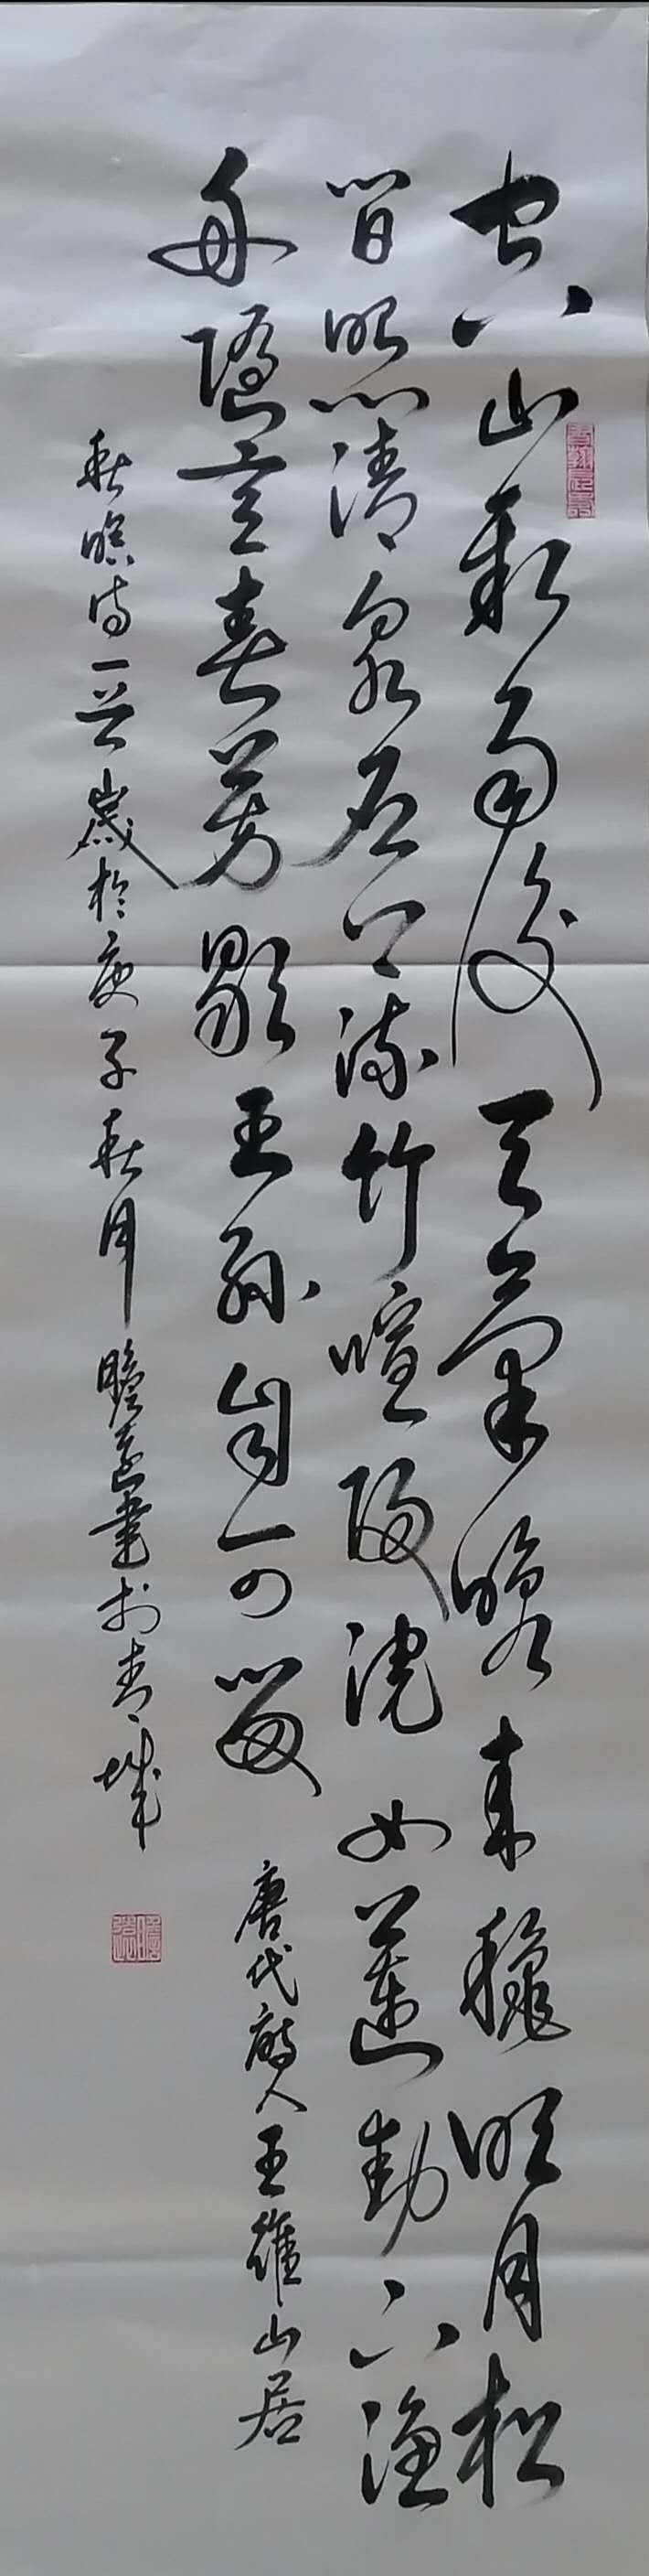 空山新雨後天氣晚來穐明月松
間照清泉石上流竹喧歸浣女蓮動下漁
舟随意春芳歇王孫自可留
唐代诗人王維山居
秋暝诗一首歲於庚子秋月瞻遠書於青城